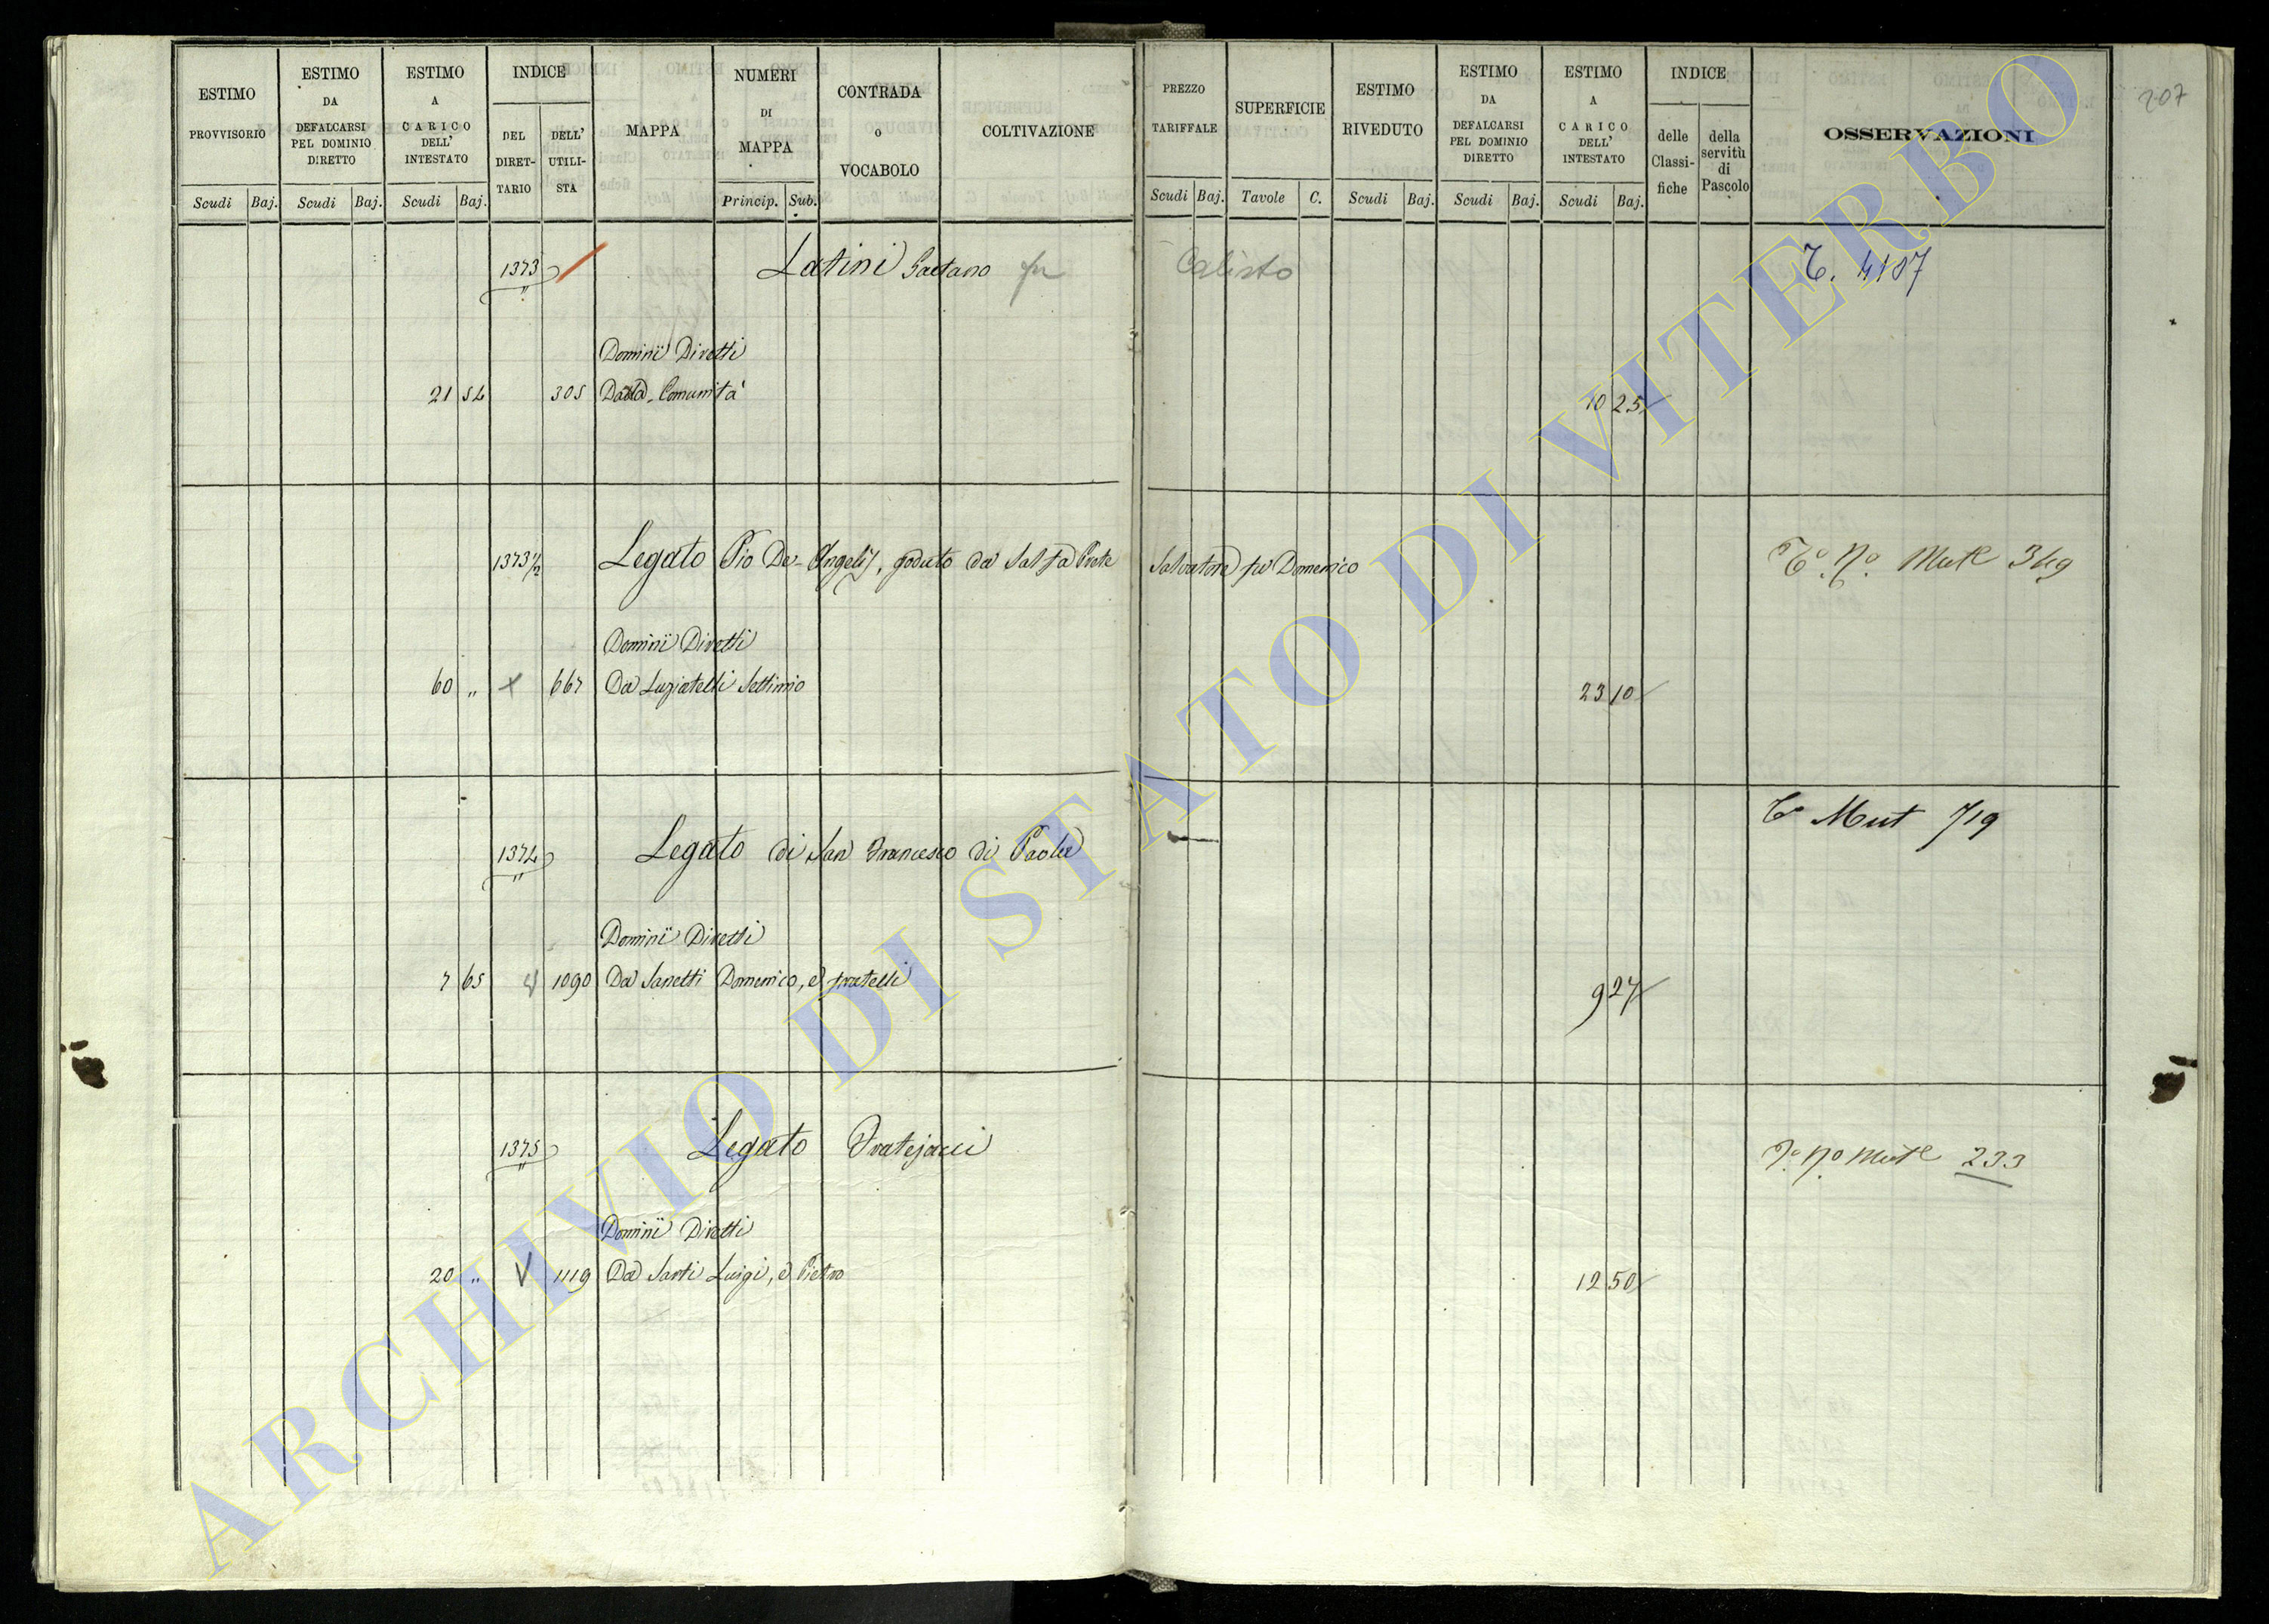 207
ESTIMO PROVVISORIO
Scudi Baj.
ESTIMO DA DEFALCARSI PEL DOMINIO DIRETTO
Scudi Baj.
ESTIMO A CARICO DELL' INTESTATO
Scudi Baj.
INDICE
DEL DIRET-TARIO
DELL' UTILI-STA
MAPPA
NUMERI DI MAPPA
Princip. Sub.
CONTRADA O VOCABOLO
COLTIVAZIONE
PREZZO TARIFFALE
Scudi Baj.
SUPERFICIE
Tavole C.
ESTIMO RIVEDUTO
Scudi Baj.
ESTIMO DA DEFALCARSI PEL DOMINIO DIRETTO
Scudi Baj.
ESTIMO A CARICO DELL' INTESTATO
Scudi Baj.
INDICE
delle Classi-fiche
della servitù di Pascolo
OSSERVAZIONI
1373 Latini Gaetano fu Calisto 4187
Dominii Diretti
21 54 305 Dalla Comunità 10 25
1373 1/2 Legato Pio De Angelis, goduto da Salvatore fu Domenico Mut 349
Dominii Diretti
60 " 667 Da Luziatelli Settimio 23 10
1374 Legato di San Francesco di Paola Mut 719
Dominii Diretti
7 65 1090 Da Sanetti Domenico, e fratelli 9 27
1375 Legato Fratejacci Mut 233
Dominii Diretti
20 " V 1119 Da Santi Luigi, e Pietro 12 50
ARCHIVIO DI STATO DI VITERBO